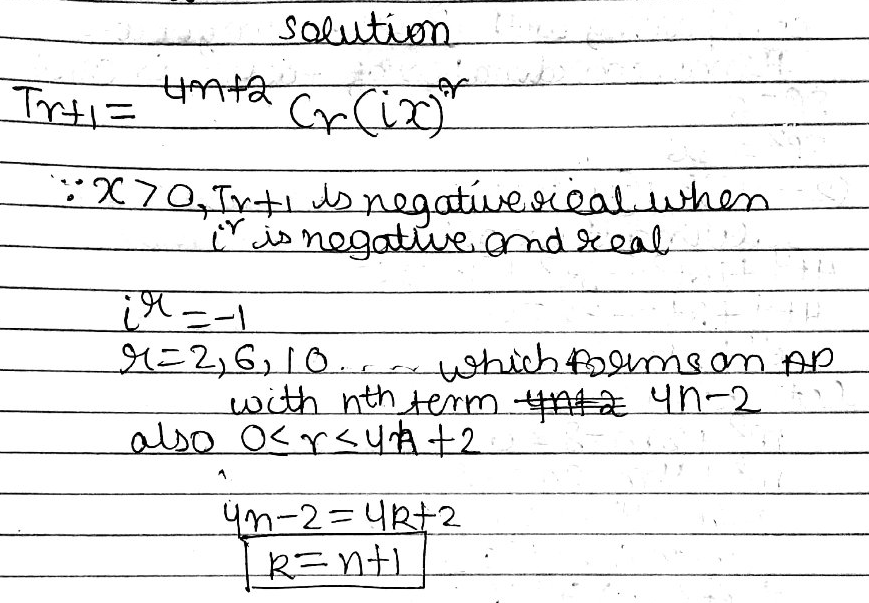 solution
Tr+1 = 4n+2 Cr (ix)^r
∵ x > 0, Tr+1 is negative real when
i^r is negative and real
i^r = -1
r = 2, 6, 10 ..... which forms an AP
with nth term 4n+2 4n-2
also 0 ≤ r ≤ 4n+2
4n-2 = 4k+2
k = n+1